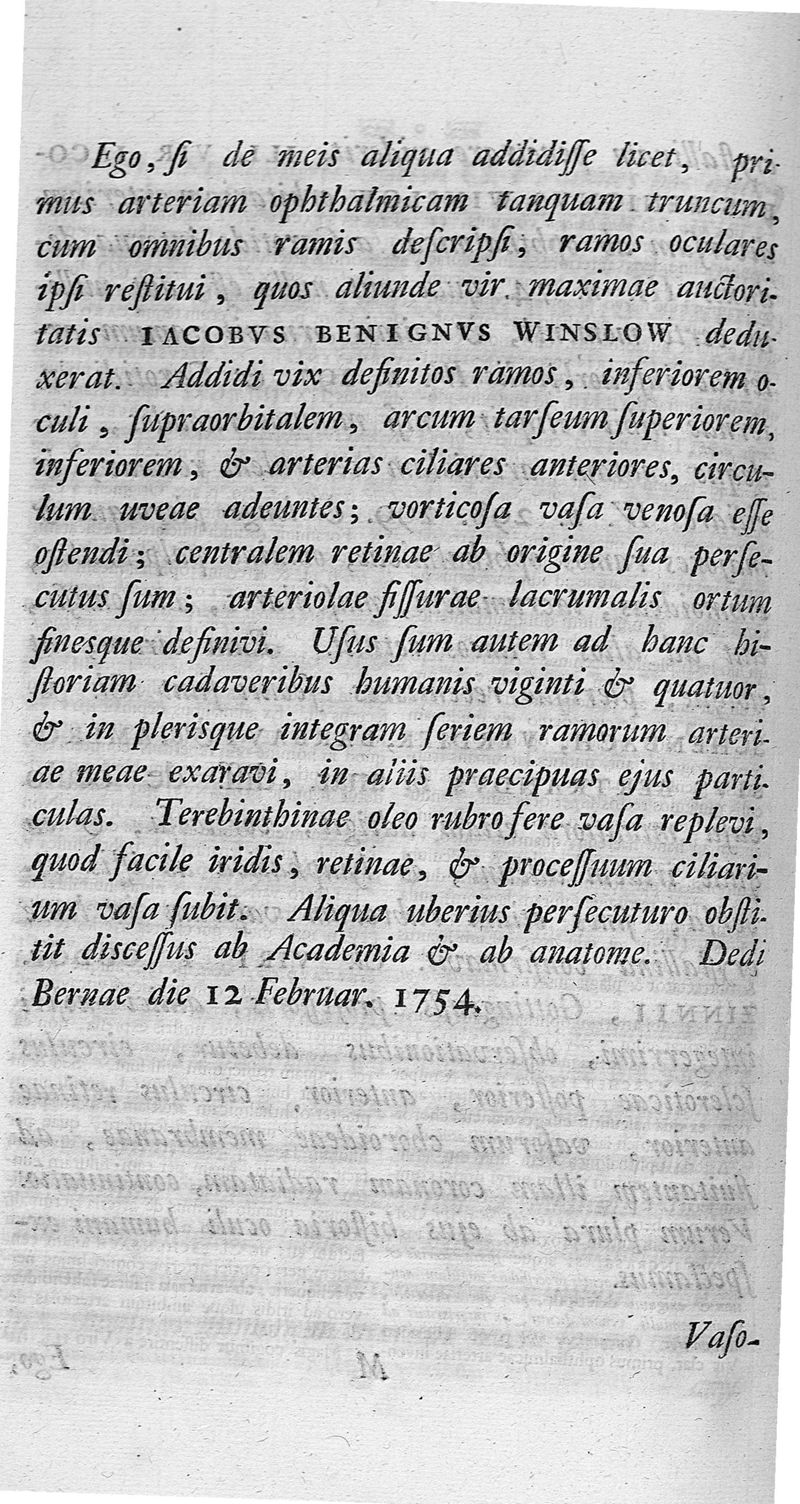 Ego, ſi de meis aliqua addidiſſe licet, pri-
mus arteriam ophthalmicam tanquam truncum,
cum omnibus ramis deſcripſi, ramos oculares
ipſi reſtitui, quos aliunde vir maximae auctori-
tatis IACOBVS BENIGNVS WINSLOW dedu-
xerat. Addidi vix definitos ramos, inferiorem o-
culi, ſupraorbitalem, arcum tarſeum ſuperiorem,
inferiorem, & arterias ciliares anteriores, circu-
lum uveae adeuntes; vorticoſa vaſa venoſa eſſe
oſtendi; centralem retinae ab origine ſua perſe-
cutus ſum; arteriolae fiſſurae lacrumalis ortum
finesque definivi. Uſus ſum autem ad hanc hi-
ſtoriam cadaveribus humanis viginti & quatuor,
& in plerisque integram ſeriem ramorum arteri-
ae meae exaravi, in aliis praecipuas ejus parti-
culas. Terebinthinae oleo rubro fere vaſa replevi,
quod facile iridis, retinae, & proceſſuum ciliari-
um vaſa ſubit. Aliqua uberius perſecuturo obſti-
tit disceſſus ab Academia & ab anatome. Dedi
Bernae die 12 Februar. 1754.
Vaſo-